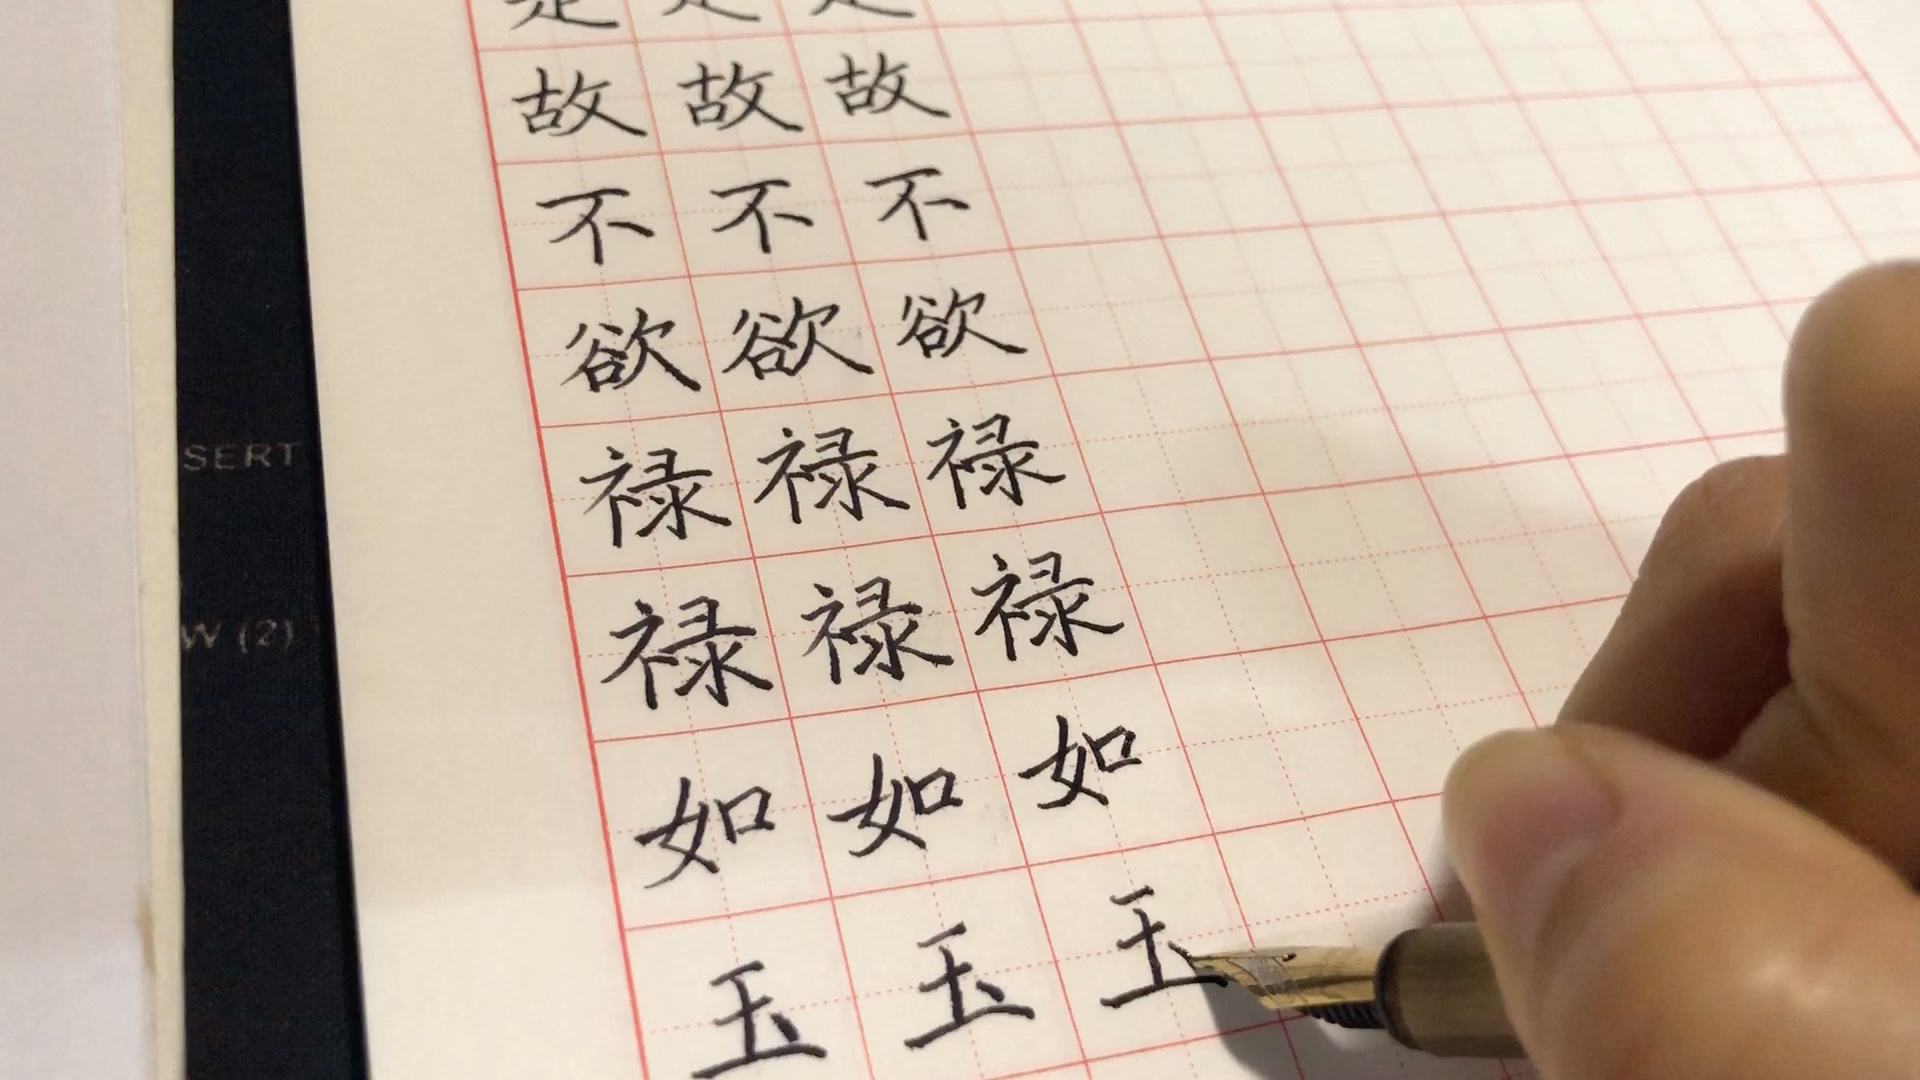 是 是 是
故 故 故
不 不 不
欲 欲 欲
禄 禄 禄
禄 禄 禄
如 如 如
玉 玉 玉
SERT
W (2)